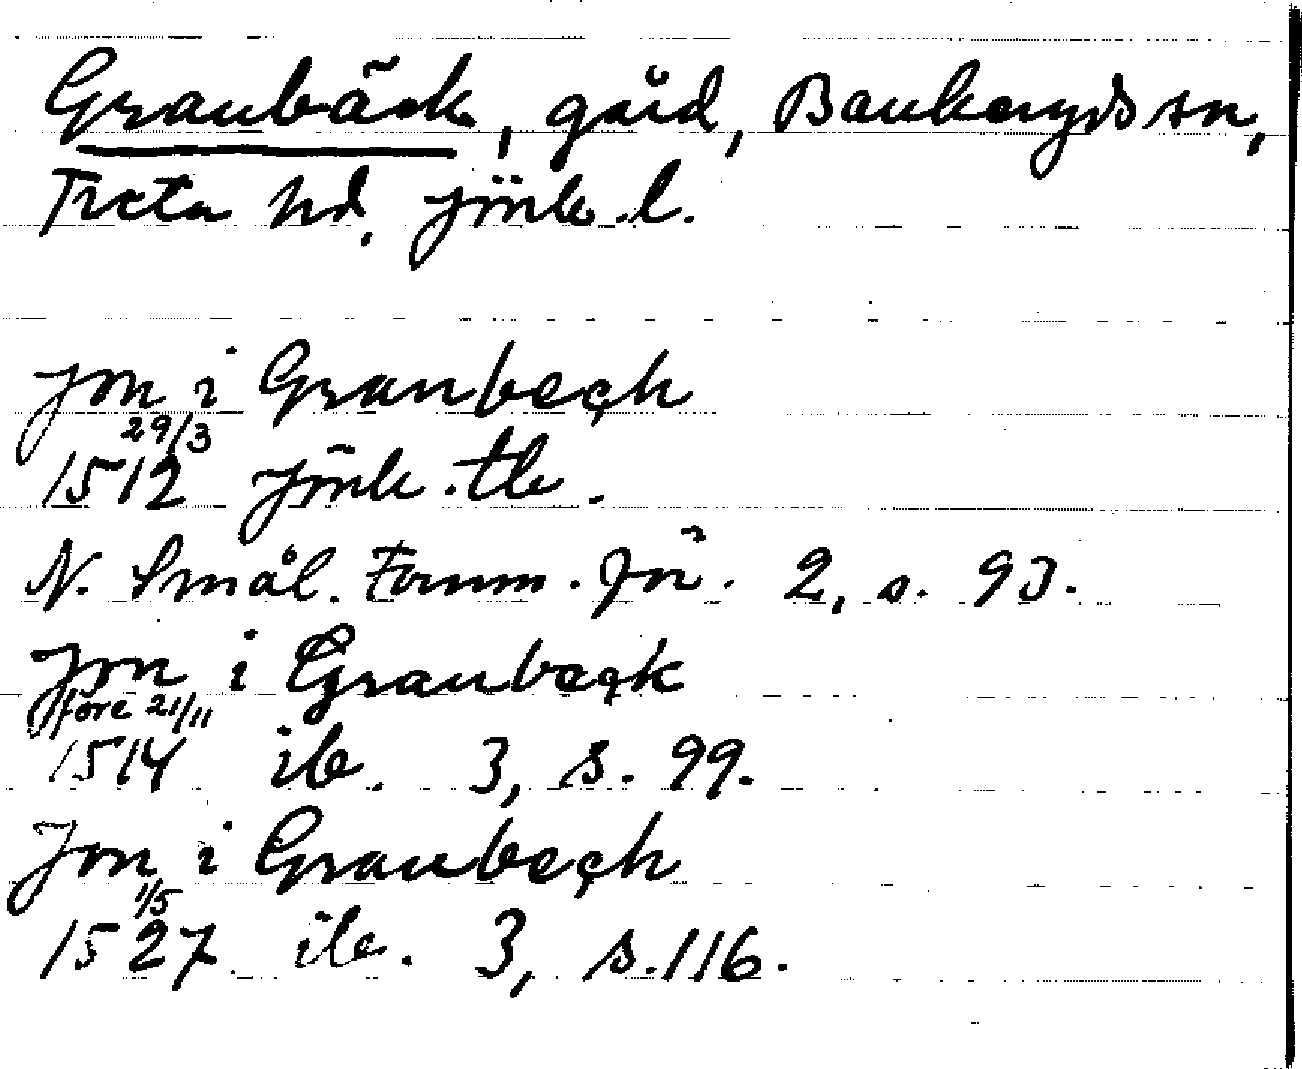 Granbäck, gård, Bankeryds sn,
Tveta hd, Jönk. l.
Jon i Granbech
29/3
1512 Jönk. tb.
N. Smål. Fornm. för. 2, s. 93.
Jon i Granbeck
före 21/11
1514 ib. 3, s. 99.
Jon i Granbech
1/5
1527 ib. 3, s. 116.